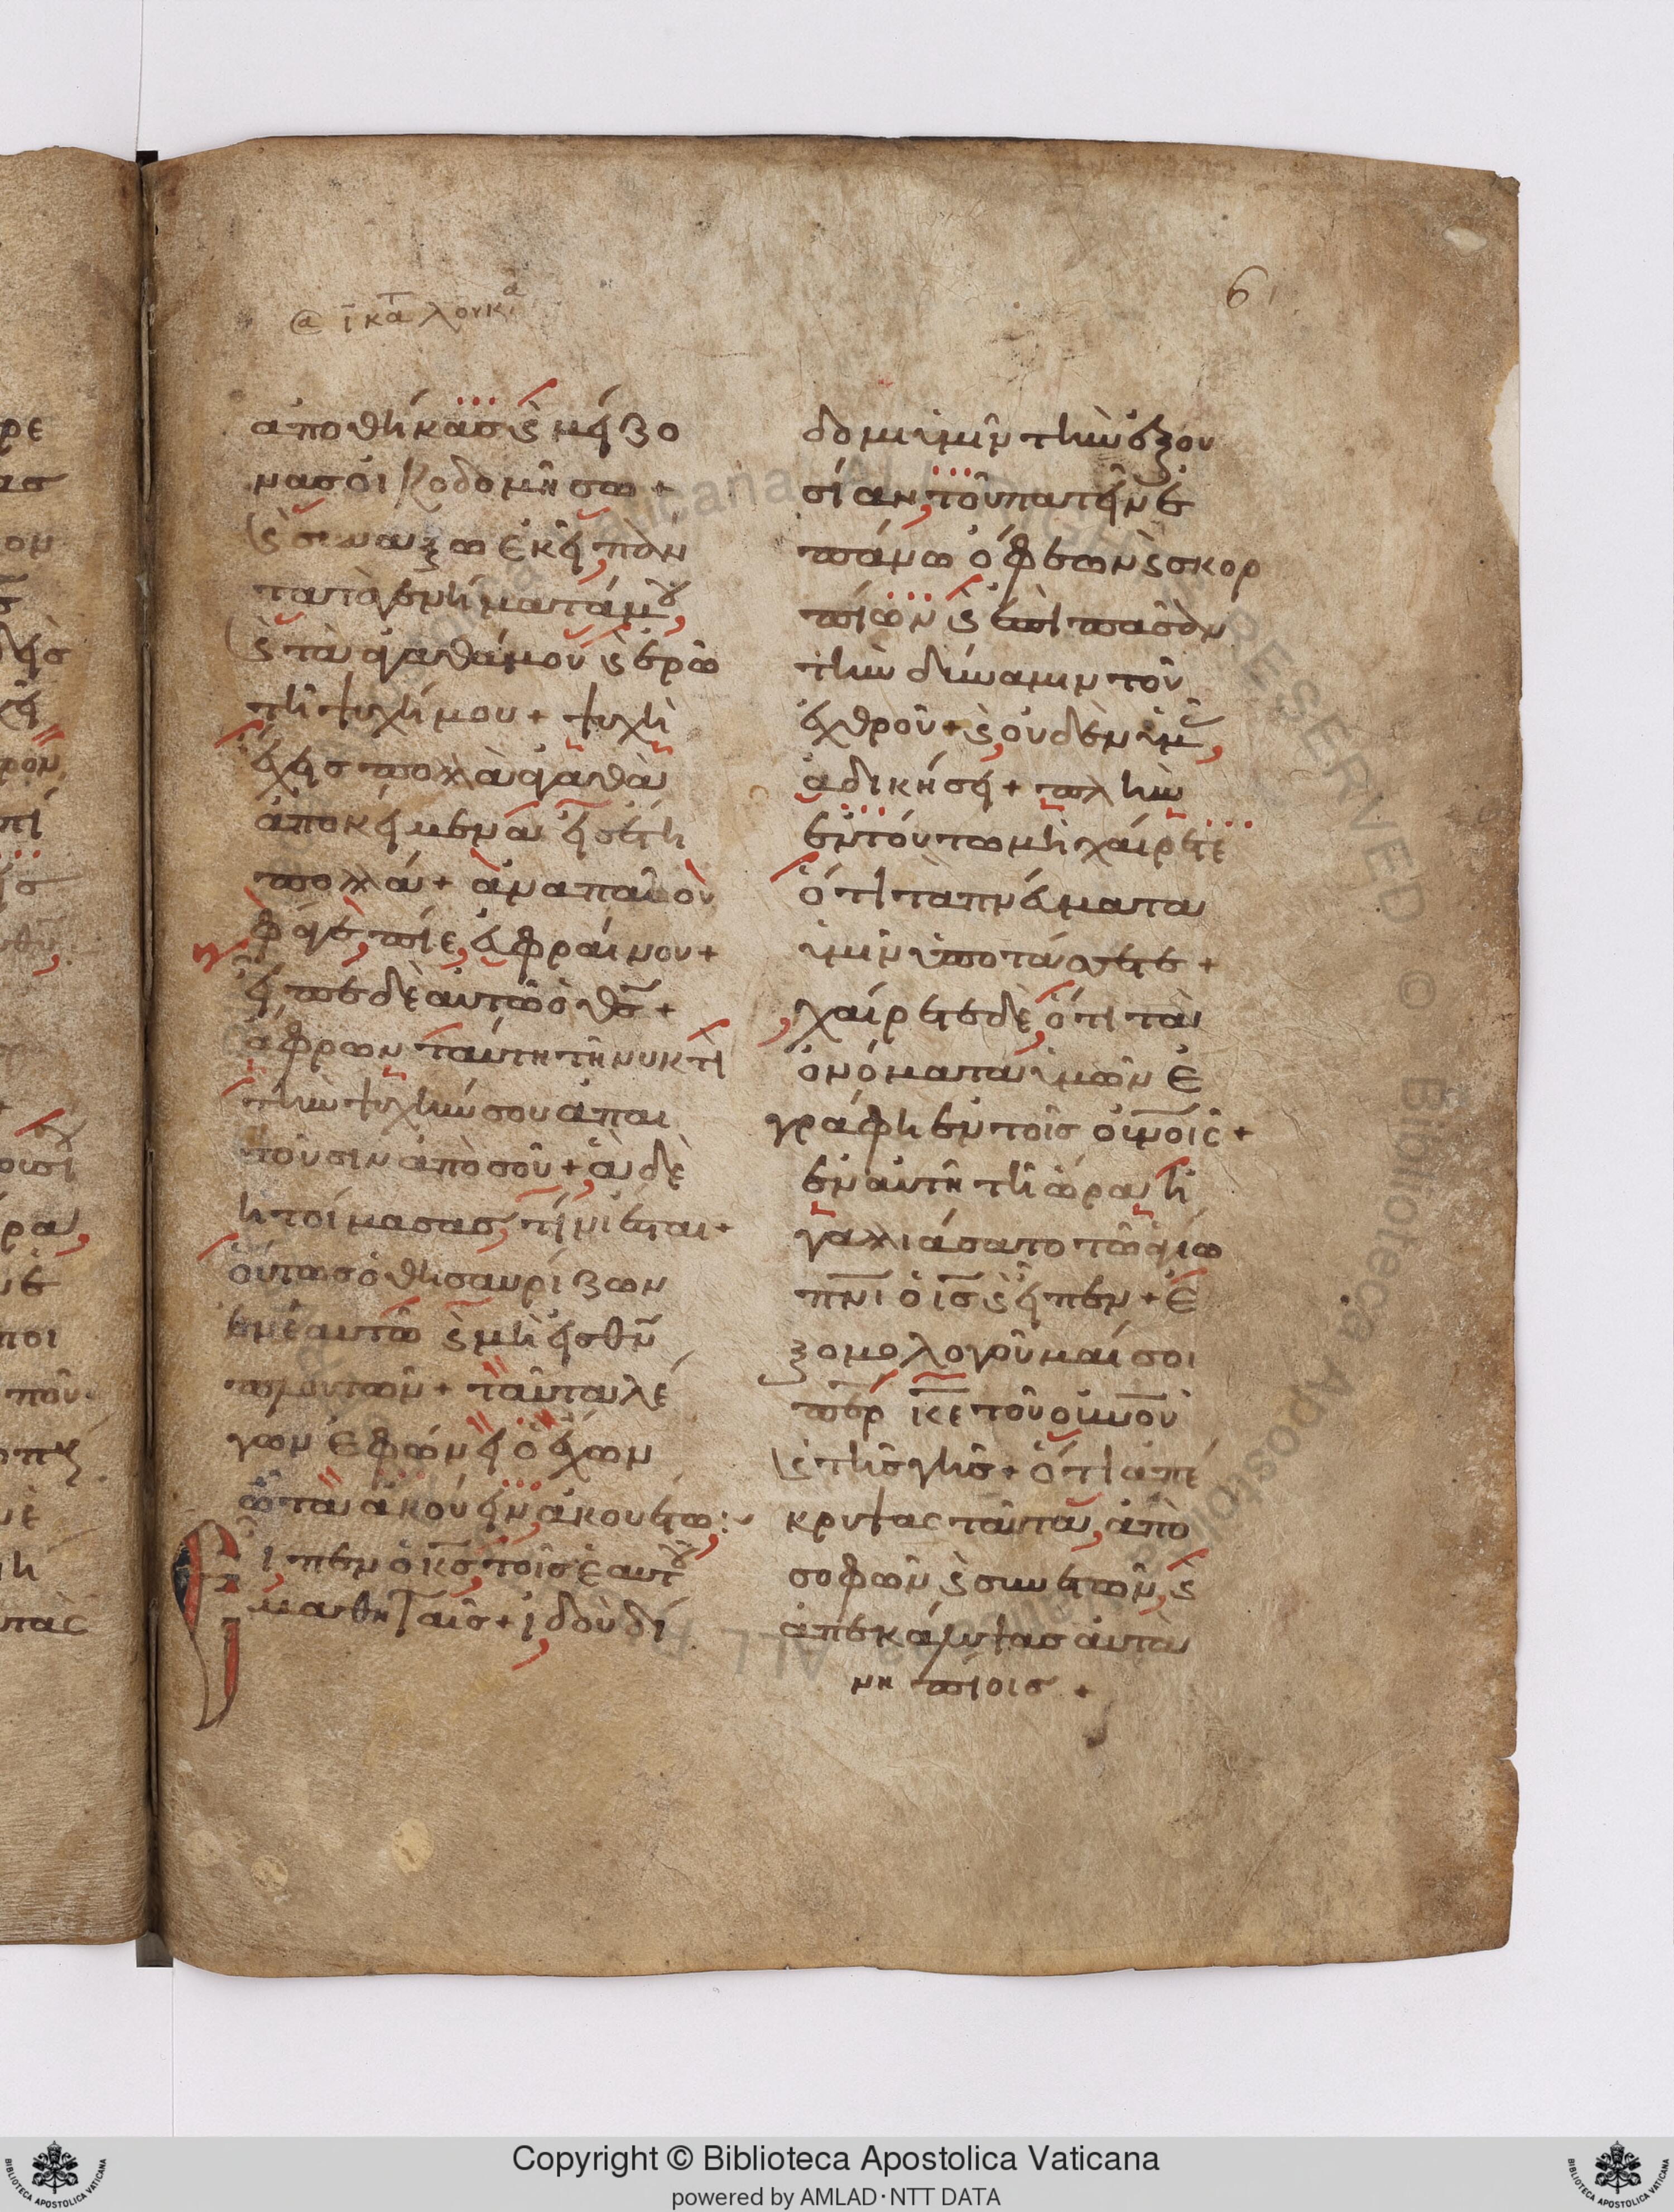 ⓐ ῑ κατ λουκα
6
ἀποθήκασ ϗ μείζο
νασ οἰκοδομῆσω +
ϗ συναξω ἐκεῖ πάν
τα τὰ γενήματά μου,
ϗ τὰ ἀγαθά μου ϗ ἐρῶ
τῆ ψυχῆ μου + ψυχὴ
ἔχεισ πολλὰ ἀγαθὰ
ἀποκείμενα εἰσ ἔτη
πολλά + ἀναπαύου
φάγε, πίε, εὐφραίνου +
εἶπε δὲ αὐτῶ ὁ θς +
ἄφρων ταύτη τῆ νυκτὶ
τὴν ψυχήν σου ἀπαι
τοῦσιν ἀπὸ σοῦ + ἃ δὲ
ἡτοίμασασ, τίνι ἔσται +
οὕτωσ ὁ θησαυρίζων
ἐν ἑαυτῶ ϗ μὴ εἰσ θν
πλουτῶν + ταῦτα λέ
γων ἐφώνει ὁ ἔχων
ὦτα ἀκούειν, ἀκουέτω :
Εἶπεν ὁ κς τοῖσ ἑαυτοῦ
μαθηταῖσ + ἰδοὺ δί
δομι ὑμῖν τὴν ἐξου
σίαν, τοῦ πατεῖν ἐ
πάνω ὄφεων ϗ σκορ
πίων ϗ ἐπὶ πᾶσαν
τὴν δύναμιν τοῦ
ἐχθροῦ + ϗ οὐδὲν ὑμᾶς
ἀδικήσει + πλὴν
ἐν τούτω μὴ χαίρετε
ὅτι τὰ πνεύματα
ὑμῖν ὑποτάσσετε +
χαίρετε δὲ, ὅτι τὰ
ὀνόματα ὑμῶν ἐ
γράφη ἐν τοῖσ οὐνοις +
ἐν αὐτῆ τῆ ὥρα ἠ
γαλλιάσατο τῶ ἁγίω
πνι ὁ ις ϗ εἶπεν + ἐ
ξομολογοῦμαί σοι
περ κε τοῦ οὐνου
ϗ τῆσ γῆσ + ὅτι ἀπέ
κρυψας ταῦτα, ἀπὸ
σοφῶν ϗ συνετῶν, ϗ
ἀπεκάλυψασ αὐτὰ
νηπίοισ +
Copyright © Biblioteca Apostolica Vaticana
powered by AMLAD・NTT DATA